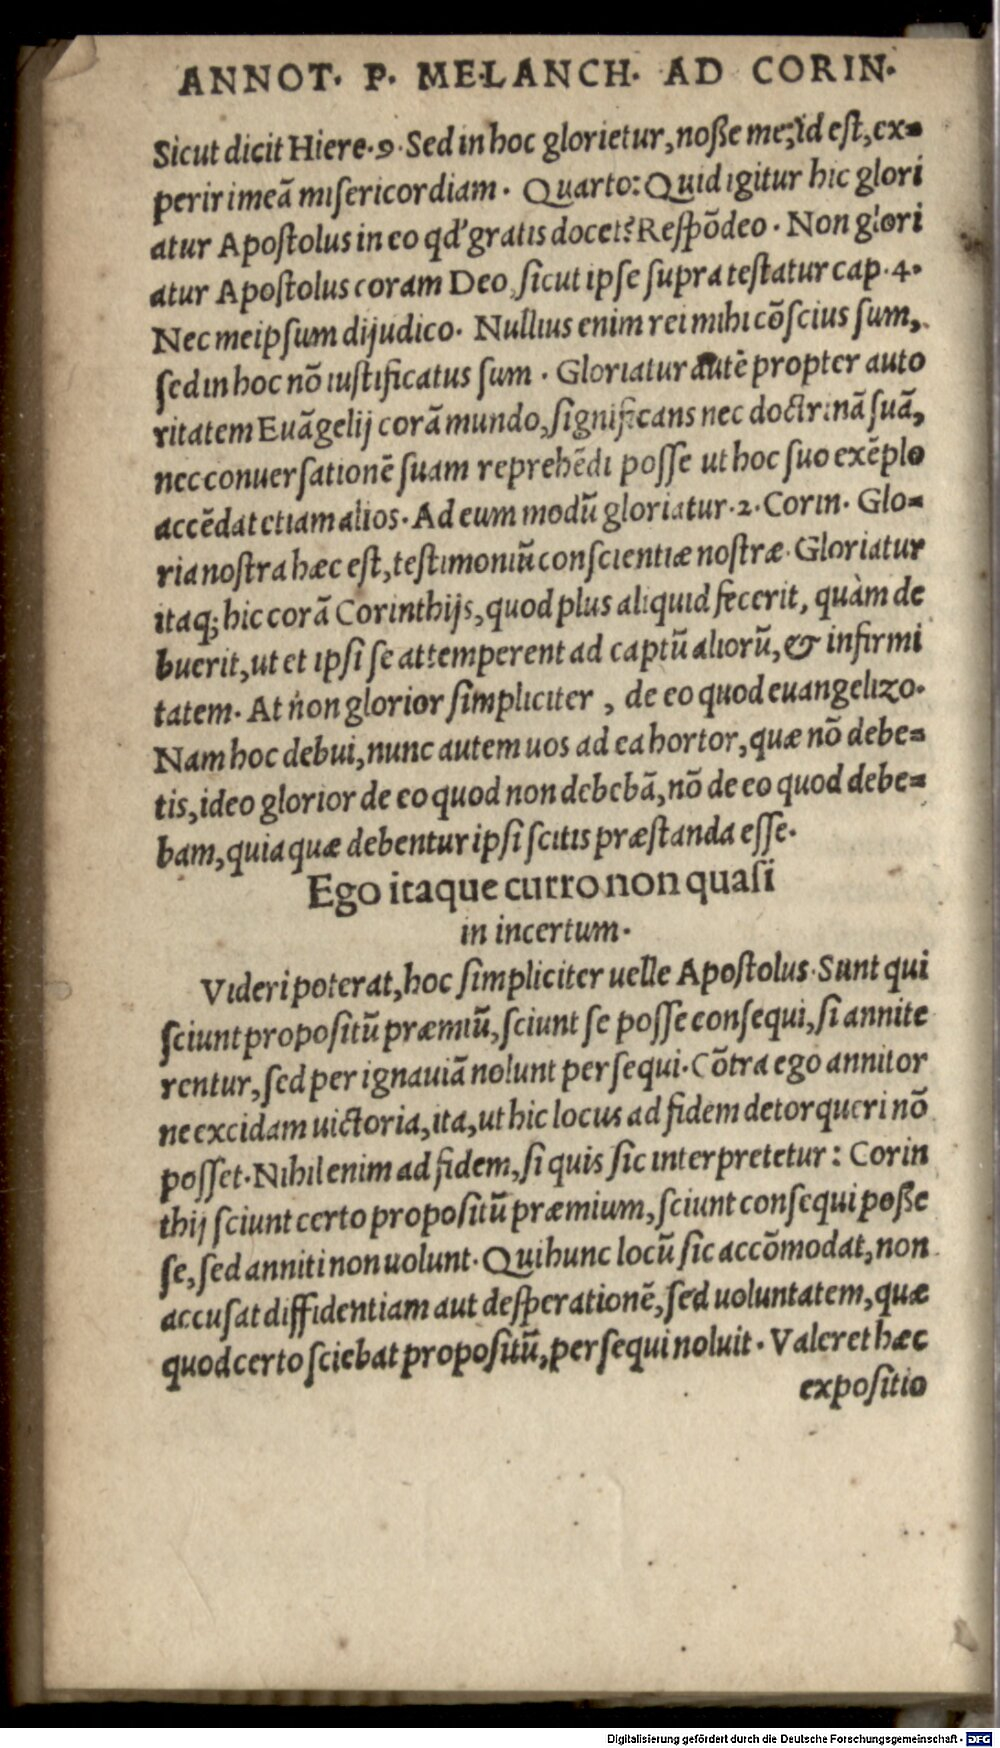 ANNOT. P. MELANCH. AD CORIN.
Sicut dicit Hiere. 9. Sed in hoc glorietur, noße me, id est, ex=
periri meã misericordiam. Quarto: Quid igitur hic glori
atur Apostolus in eo qd' gratis docet? Respõdeo. Non glori
atur Apostolus coram Deo, sicut ipse supra testatur cap. 4.
Nec meipsum dijudico. Nullius enim rei mihi cõscius sum,
sed in hoc nõ iustificatus sum. Gloriatur autẽ propter auto
ritatem Euãgelij corã mundo, significans nec doctrinã suã,
nec conuersationẽ suam reprehẽdi posse ut hoc suo exẽplo
accẽdat etiam alios. Ad eum modũ gloriatur. 2. Corin. Glo=
ria nostra hæc est, testimoniũ conscientiæ nostræ. Gloriatur
itaq; hic corã Corinthijs, quod plus aliquid fecerit, quàm de
buerit, ut et ipsi se attemperent ad captũ aliorũ, & infirmi
tatem. At non glorior simpliciter, de eo quod euangelizo.
Nam hoc debui, nunc autem uos ad ea hortor, quæ nõ debe=
tis, ideo glorior de eo quod non debebã, nõ de eo quod debe=
bam, quia quæ debentur ipsi scitis præstanda esse.
Ego itaque curro non quasi
in incertum.
Videri poterat, hoc simpliciter uelle Apostolus. Sunt qui
sciunt propositũ præmiũ, sciunt se posse consequi, si annite
rentur, sed per ignauiã nolunt persequi. Cõtra ego annitor
ne excidam uictoria, ita, ut hic locus ad fidem detorqueri nõ
posset. Nihil enim ad fidem, si quis sic interpretetur: Corin
thij sciunt certo propositũ præmium, sciunt consequi poße
se, sed anniti non uolunt. Qui hunc locũ sic accõmodat, non
accusat diffidentiam aut desperationẽ, sed uoluntatem, quæ
quod certo sciebat propositũ, persequi noluit. Valeret hæc
expositio
Digitalisierung gefördert durch die Deutsche Forschungsgemeinschaft - DFG